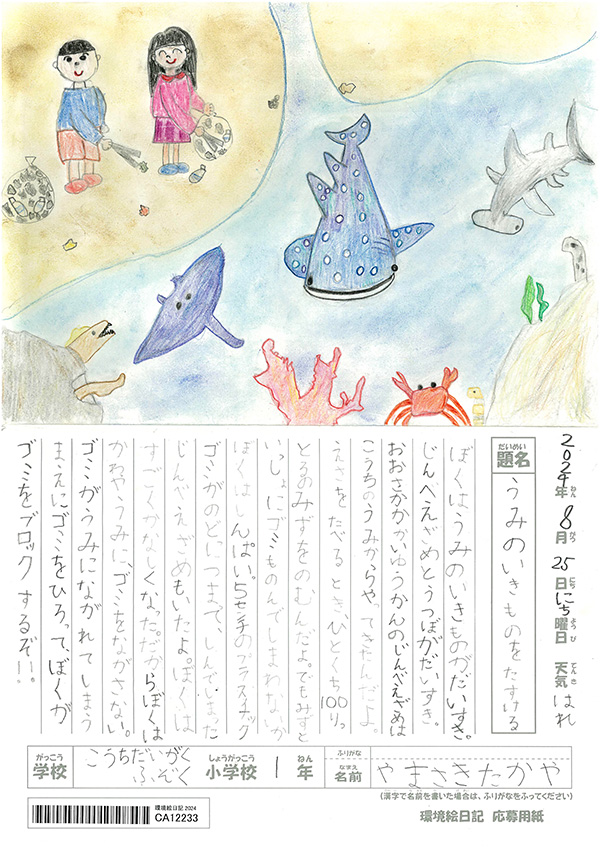 2024年 8月 25日 にち曜日 天気 はれ
ねん がつ にち ようび てんき
だいめい
題名
うみのいきものをたすける
ぼくはうみのいきものがだいすき。
じんべえざめとうつぼがだいすき。
おおさかかいゆうかんのじんべえざめは
こうちのうみからやってきたんだよ。
えさをたべるとき、ひとくち100りっ
とるのみずをのむんだよ。でもみずと
いっしょにゴミものんでしまわないか
ぼくはしんぱい。5センチのプラスチック
ゴミがのどにつまって、しんでしまった
じんべえざめもいたよ。ぼくは
すごくかなしくなった。だからぼくは
かわやうみに、ゴミをながさない。
ゴミがうみにながれてしまう
まえにゴミをひろって、ぼくが
ゴミをブロックするぞ!!。
がっこう
学校
こうちだいがく
ふぞく
しょうがっこう
小学校
1
ねん
年
ふりがな
なまえ
名前
やまさきたかや
(漢字で名前を書いた場合は、ふりがなをふってください)
環境絵日記 2024
CA12233
環境絵日記 応募用紙